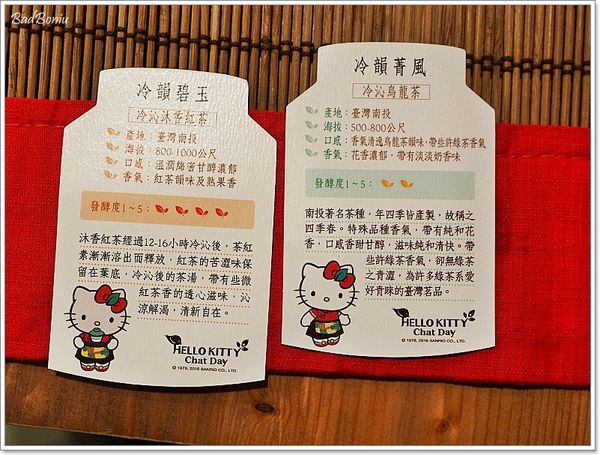 BadBoniu
冷韻碧玉
冷沁沐香紅茶
產地：臺灣南投
海拔：800-1000公尺
口感：溫潤綿密甘醇濃郁
香氣：紅茶韻味及熟果香
發酵度1~5：
沐香紅茶經過12-16小時冷沁後，茶紅
素漸漸溶出而釋放，紅茶的苦澀味保
留在葉底，冷沁後的茶湯，帶有些微
紅茶香的透心滋味，沁
涼解渴，清新自在。
HELLO KITTY
Chat Day
© 1976, 2016 SANRIO CO., LTD.
冷韻菁風
冷沁烏龍茶
產地：臺灣南投
海拔：500-800公尺
口感：香氣清逸烏龍茶韻味，帶些許綠茶香氣
香氣：花香濃郁，帶有淡淡奶香味
發酵度1~5：
南投著名茶種，年四季皆產製，故稱之
四季春。特殊品種香氣，帶有純和花
香，口感香甜甘醇，滋味純和清快。帶
些許綠茶香氣，卻無綠茶
之青澀，為許多綠茶系愛
好青睞的臺灣茗品。
HELLO KITTY
Chat Day
© 1976, 2016 SANRIO CO., LTD.